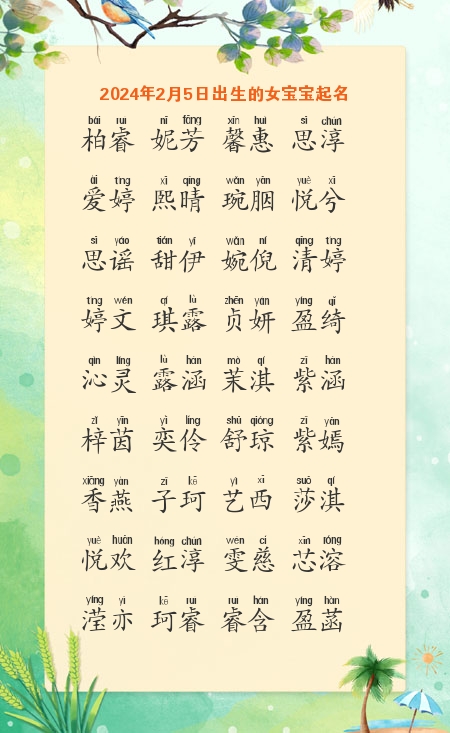 2024年2月5日出生的女宝宝起名
bǎi ruì nī fāng xīn huì sī chún
柏睿 妮芳 馨惠 思淳
ài tíng xī qíng wǎn yān yuè xī
爱婷 熙晴 琬胭 悦兮
sī yáo tián yī wǎn ní qīng tíng
思谣 甜伊 婉倪 清婷
tíng wén qí lù zhēn yán yíng qǐ
婷文 琪露 贞妍 盈绮
qìn líng lù hán mò qí zǐ hán
沁灵 露涵 茉淇 紫涵
zǐ yīn yì líng shū qióng zǐ yān
梓茵 奕伶 舒琼 紫嫣
xiāng yàn zǐ kē yì xī suō qí
香燕 子珂 艺西 莎淇
yuè huān hóng chún wén cí xīn róng
悦欢 红淳 雯慈 芯溶
yíng yì kē ruì ruì hán yíng hàn
滢亦 珂睿 睿含 盈菡